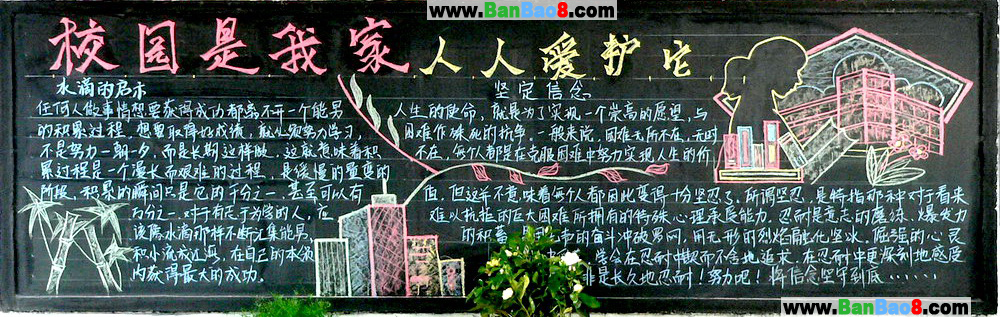 www.BanBao8.com
校园是我家 人人爱护它
水滴的启示
任何人做事情想要获得成功都离不开一个能男
的积累过程，想要取得好成绩，就必须努力学习，
不是努力一朝一夕，而是长期这样做，这就意味着积
累过程是一个漫长而艰难的过程，是缓慢的重复的
阶段，积累的瞬间只是它的千分之一，甚至可以有
万分之一，对于有志于为学的人，应
该像水滴那样不断汇集能男，
积小流成江海，在自己的本领
内获得最大的成功。
坚定信念
人生的使命，就是为了实现一个崇高的愿望，与
困难作殊死的抗争，一般来说，困难无所不在，无时
不在，每个人都是在克服困难中努力实现人生的价
值，但这并不意味着每个人都因此变得十分坚忍了。所谓坚忍，是特指那种对于看来
难以抗拒的巨大困难所拥有的特殊心理承受能力，忍耐是意志的磨练，爆发力
的积蓄，用无声的奋斗冲破男网，用无形的烈焰融化坚冰，倔强的心灵
会在忍耐中锲而不舍地追求，在忍耐中更深刻地感受
非是长久地忍耐！努力吧！将信念坚守到底……
www.BanBao8.com